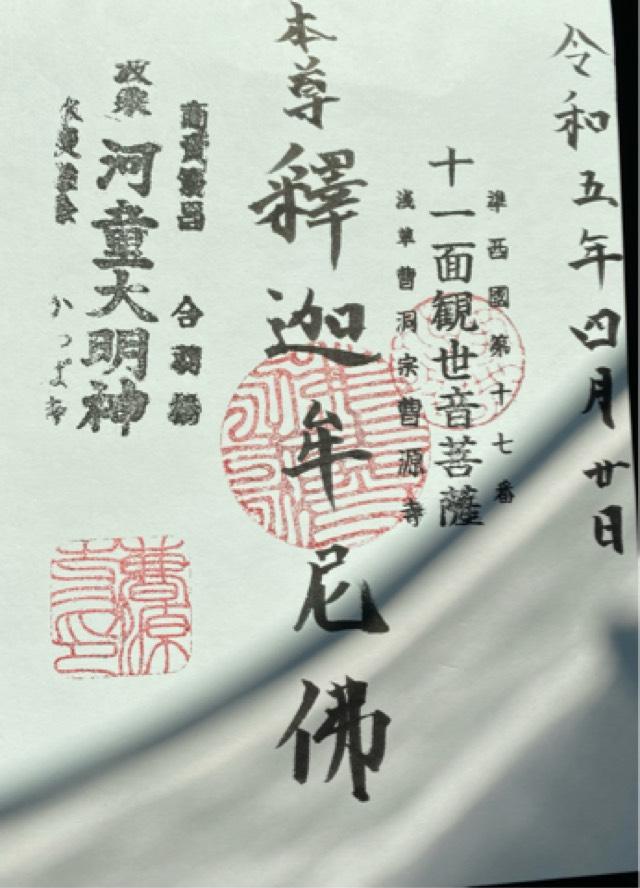 令和五年四月廿日
準西國第十七番
十一面観世音菩薩
浅草曹洞宗曹源寺
本尊
釋迦牟尼佛
商賣繁昌 合羽橋
波乗
河童大明神
かっぱ寺
曹源寺印